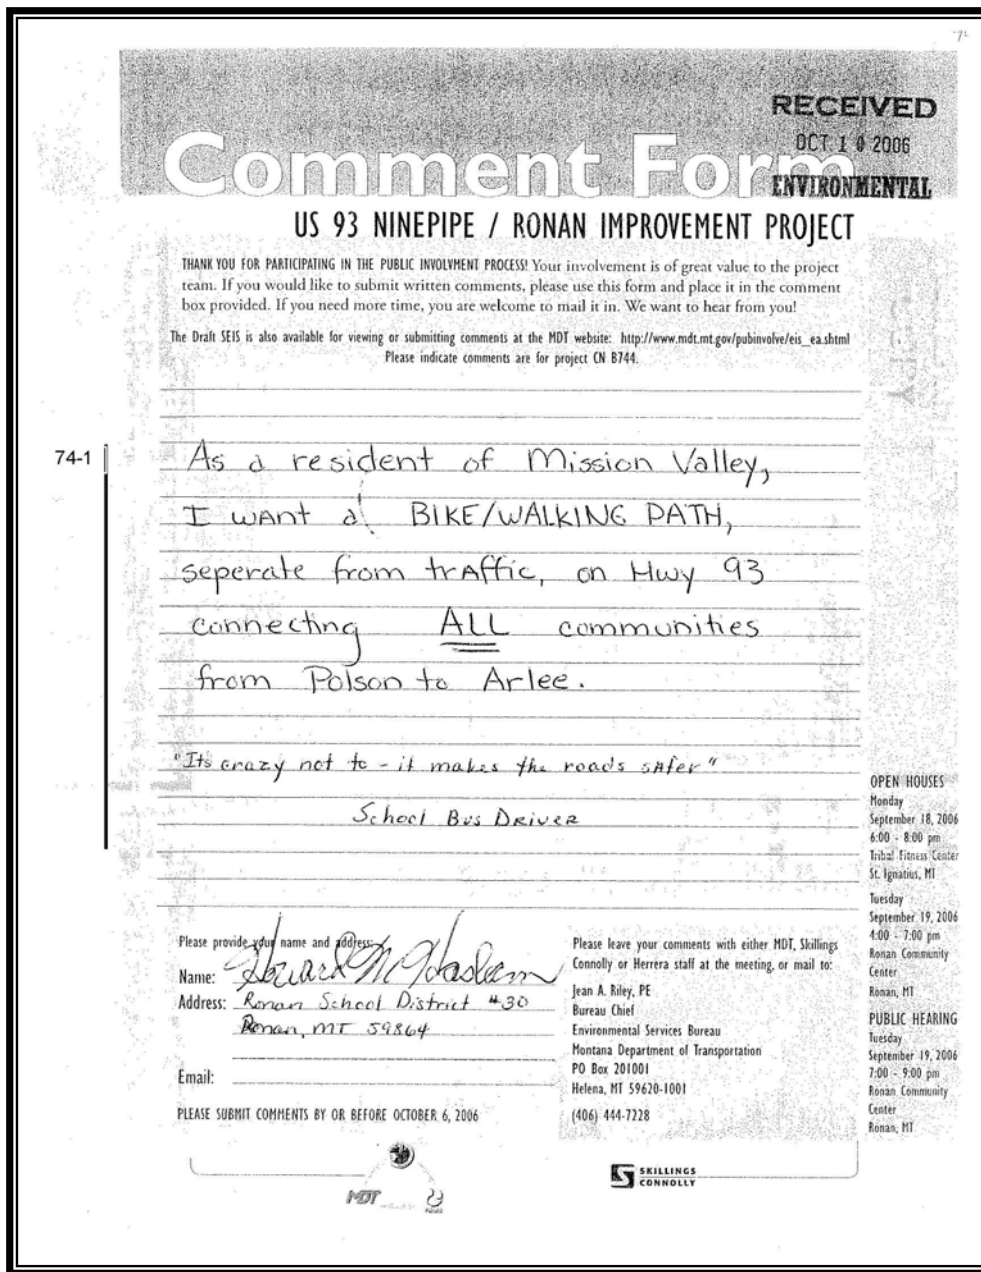 RECEIVED
OCT 10 2006
ENVIRONMENTAL
Comment Form
US 93 NINEPIPE / RONAN IMPROVEMENT PROJECT
THANK YOU FOR PARTICIPATING IN THE PUBLIC INVOLVMENT PROCESS! Your involvement is of great value to the project
team. If you would like to submit written comments, please use this form and place it in the comment
box provided. If you need more time, you are welcome to mail it in. We want to hear from you!
The Draft SEIS is also available for viewing or submitting comments at the MDT website: http://www.mdt.mt.gov/pubinvolve/eis_ea.shtml
Please indicate comments are for project CN B744.
74-1
As a resident of Mission Valley,
I want a BIKE/WALKING PATH,
seperate from traffic, on Hwy 93
connecting ALL communities
from Polson to Arlee.
"Its crazy not to - it makes the roads safer"
School Bus Driver
Please provide your name and address:
Name: Howard M
Address: Ronan School District #30
Ronan, MT 59864
Email:
PLEASE SUBMIT COMMENTS BY OR BEFORE OCTOBER 6, 2006
Please leave your comments with either MDT, Skillings
Connolly or Herrera staff at the meeting, or mail to:
Jean A. Riley, PE
Bureau Chief
Environmental Services Bureau
Montana Department of Transportation
PO Box 201001
Helena, MT 59620-1001
(406) 444-7228
OPEN HOUSES
Monday
September 18, 2006
6:00 - 8:00 pm
Tribal Fitness Center
St. Ignatius, MT
Tuesday
September 19, 2006
4:00 - 7:00 pm
Ronan Community
Center
Ronan, MT
PUBLIC HEARING
Tuesday
September 19, 2006
7:00 - 9:00 pm
Ronan Community
Center
Ronan, MT
MDT
SKILLINGS
CONNOLLY